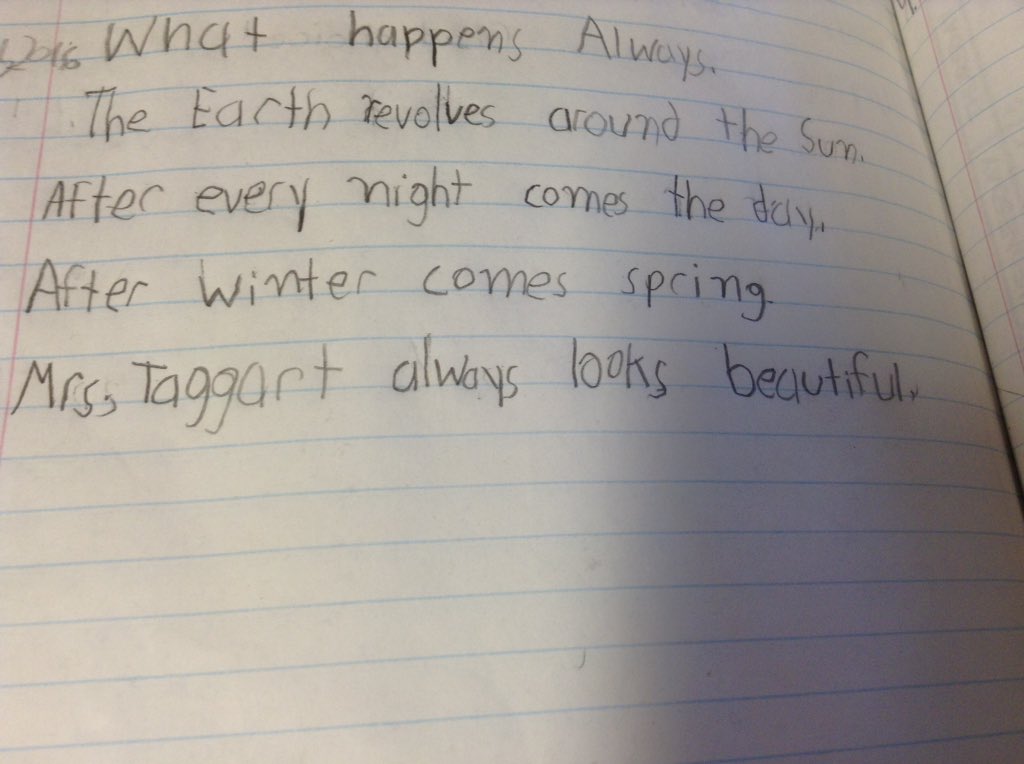 2016 What happens Always.
The Earth revolves around the Sun.
After every night comes the day.
After winter comes spring.
Mrs, Taggart always looks beautiful.